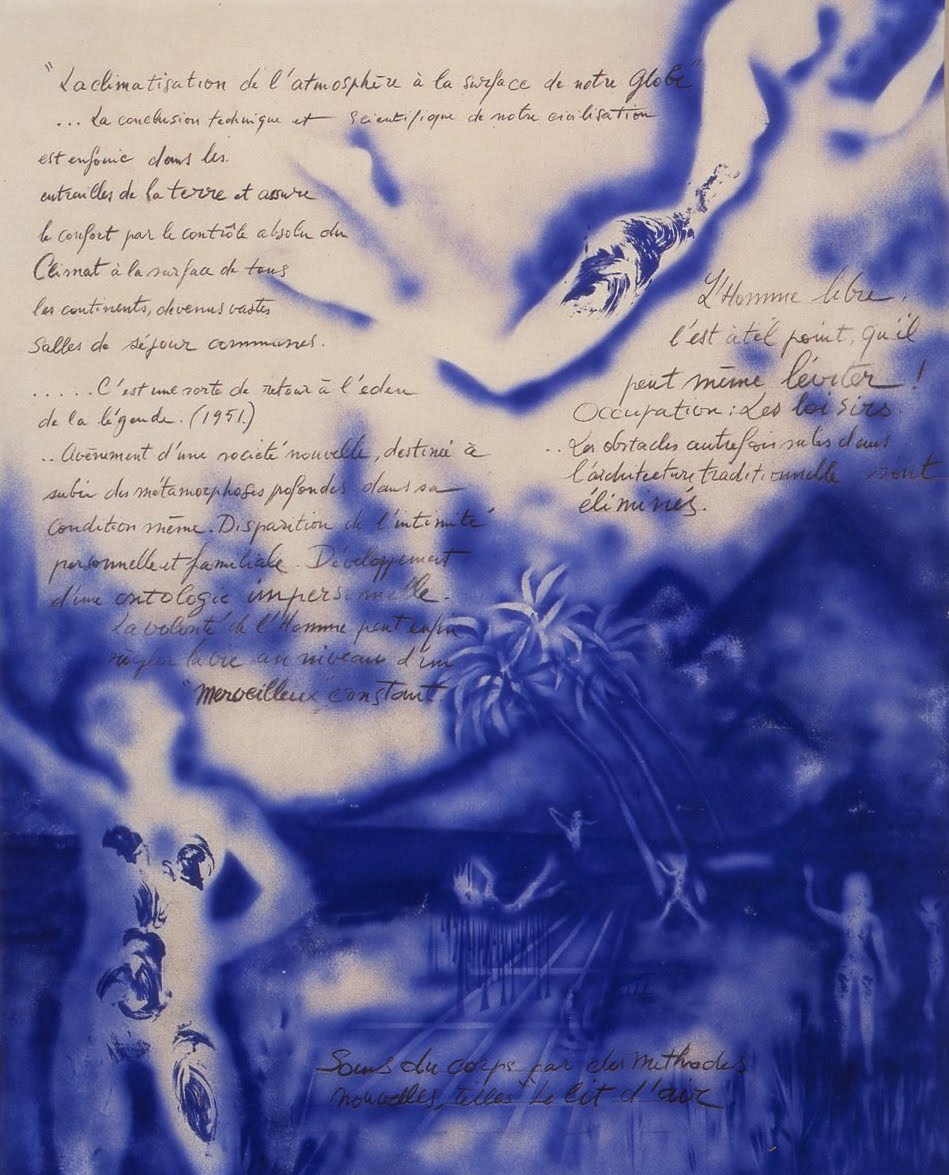 "La climatisation de l'atmosphère à la surface de notre Globe"
... La conclusion technique et scientifique de notre civilisation
est enfouie dans les
entrailles de la terre et assure
le confort par le contrôle absolu du
Climat à la surface de tous
les continents, devenus vastes
salles de séjour communes.
..... C'est une sorte de retour à l'éden
de la légende. (1951.)
.. Avènement d'une société nouvelle, destinée à
subir des métamorphoses profondes dans sa
condition même. Disparition de l'intimité
personnelle et familiale. Développement
d'une ontologie impersonnelle.
La volonté de l'Homme peut enfin
régler la vie au niveau d'un
"merveilleux" constant.
L'Homme libre,
l'est à tel point, qu'il
peut même léviter !
Occupation : Les loisirs.
.. Les obstacles autrefois subis dans
l'architecture traditionnelle sont
éliminés.
Soins du corps par des méthodes
nouvelles, telles le lit d'air